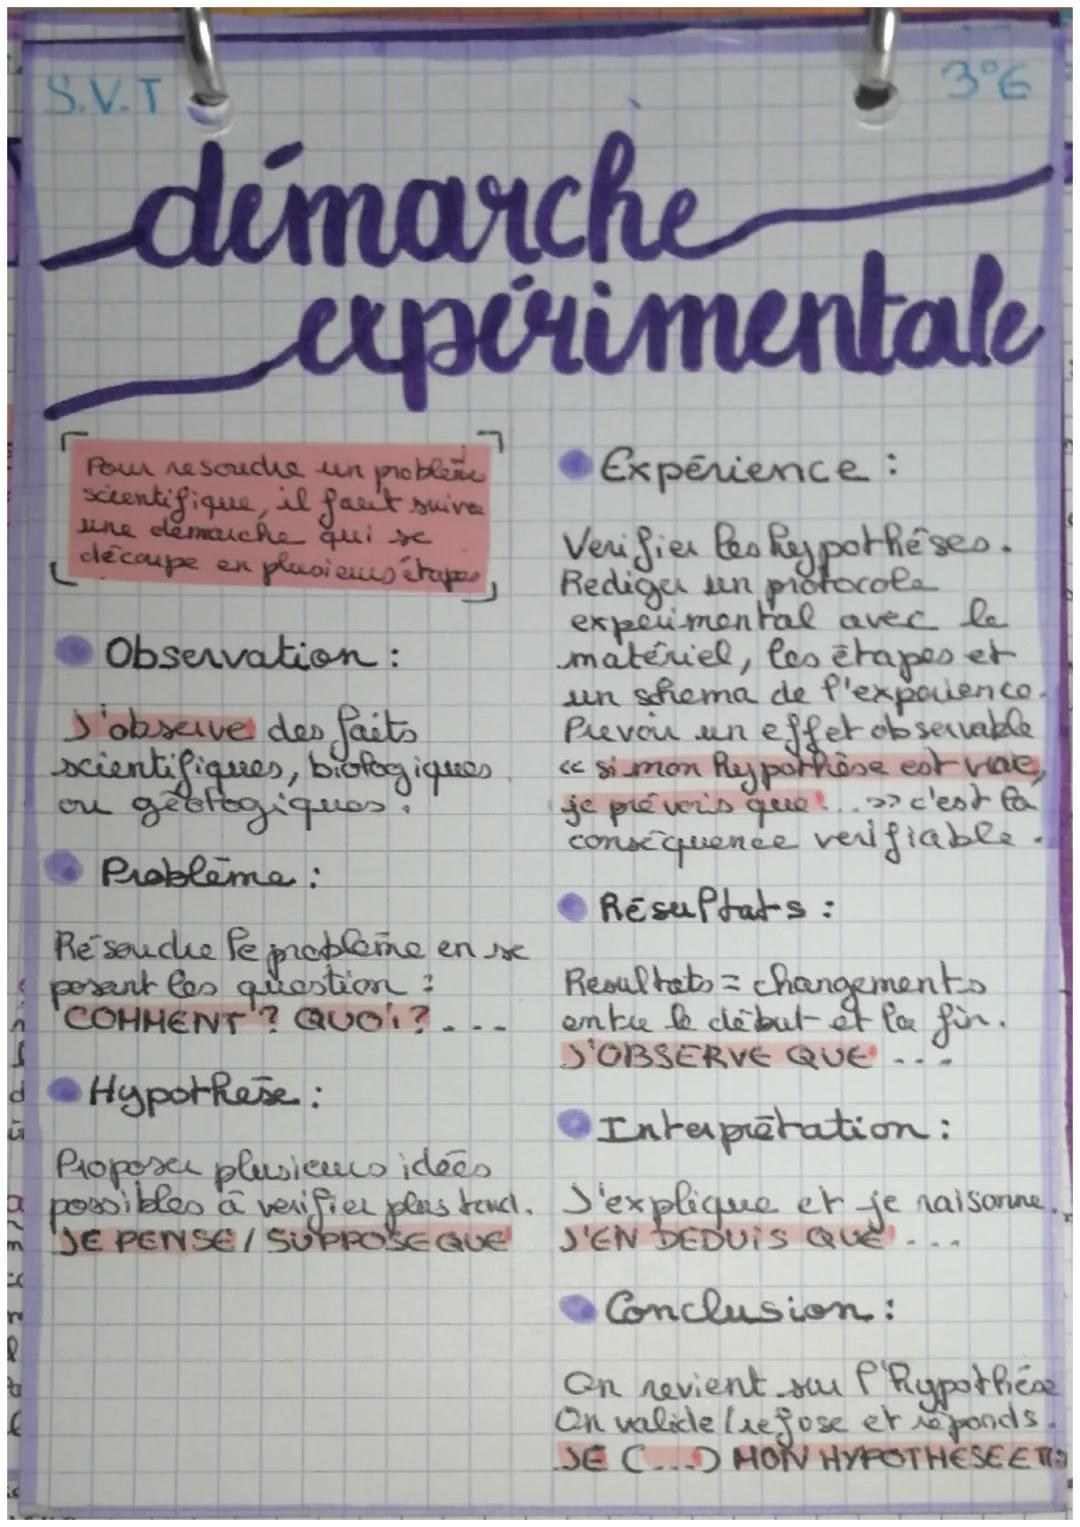 S.V.T
3°6
démarche
expérimentale
Pour resoudre un problème
scientifique, il faut suivre
une démarche qui se
découpe en plusieurs étapes
Observation :
J'observe des faits
scientifiques, biologiques
ou géologiques.
Problème :
Résoudre le problème en se
posant les question :
COMMENT ? QUOI ? ...
Hypothèse :
Proposer plusieurs idées
possibles à verifier plus tard.
JE PENSE / SUPPOSE QUE
Expérience :
Verifier les hypothèses.
Rediger un protocole
experimental avec le
matériel, les étapes et
un schema de l'experience.
Prevoir un effet observable
<< si mon hypothèse est vraie,
je prévois que ... >> c'est la
conséquence verifiable.
Résultats :
Resultats = changements
entre le début et la fin.
J'OBSERVE QUE ...
Interprétation :
J'explique et je raisonne.
J'EN DEDUIS QUE ...
Conclusion :
On revient sur l'hypothèse
On valide / refose et réponds.
JE (...) MON HYPOTHESE ET